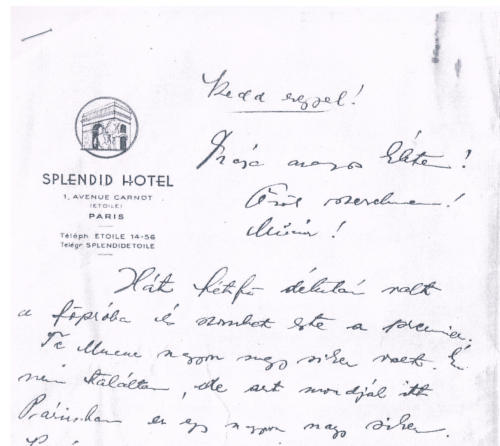 SPLENDID HOTEL
1, AVENUE CARNOT
(ETOILE)
PARIS
Téléph ETOILE 14-56
Télégr SPLENDIDETOILE
Kedd reggel!
Drága nagy Élete!
Örök szerelmem!
Hát hétfő délután volt
a főpróba és szombat este a premier.
nagyon nagy siker volt. Én
nem találtam, de azt mondják itt
Párisban ez egy nagyon nagy siker.